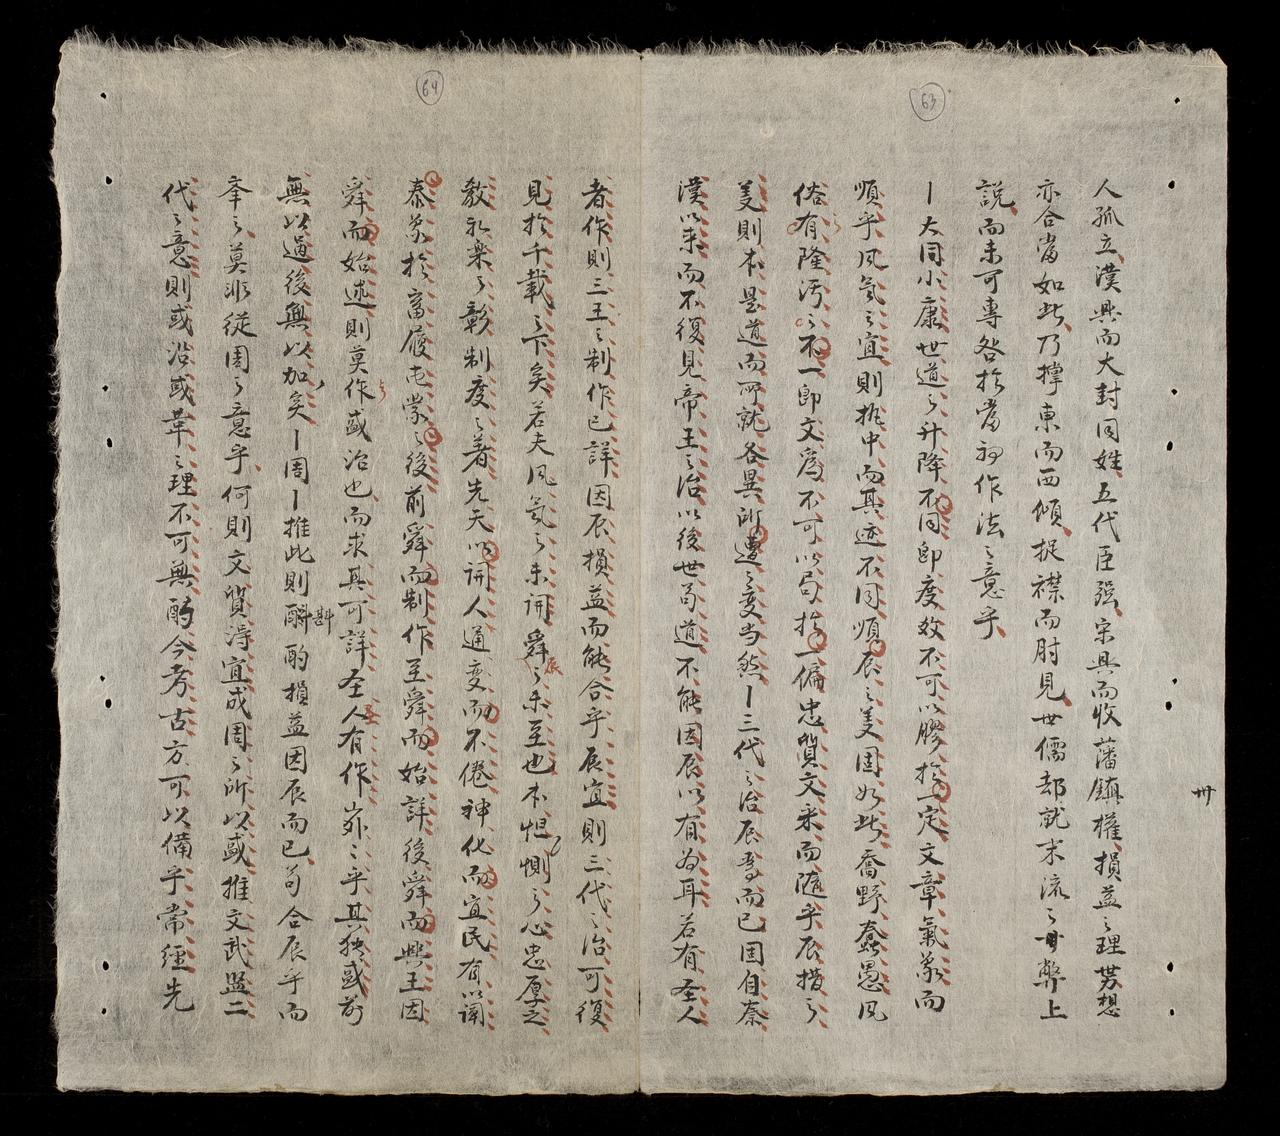 63
卅
人孤立漢興而大封同姓五代臣强宋興而收藩鎮權損益之理勢想
亦合當如此乃撑東而西傾捉襟而肘見世儒却就末流之弊上
說而未可專咎於當初作法之意乎
一大同小康世道之升降不同即度效不可以膠於一定文章氣象而
順乎風氣之宜則執中而其迹不同順辰之美固如此喬野蠢愚風
俗有隆污之不一即文爲不可以局於一偏忠質文采而隨乎辰措之
美則本是道而所就各異所遭之變当然一三代之治辰爲而已固自秦
漢以来而不復見帝王之治以後世苟道不能因辰以有为耳若有圣人
64
者作則三王之制作已詳因辰損益而能合乎辰宜則三代之治可復
見於千載之下矣若夫風氣之未開舜之未至也本怛惻之心忠厚之
教礼楽之彰制度之著先天以開人通变而不倦神化而宜民有以開
泰象於畜履屯蒙之後前舜而制作至舜而始詳後舜而興王因
舜而始述則莫作盛治也而求其可詳圣人有作
之乎其独盛前
無以過後無以加矣一周一推此則斟酌損益因辰而已苟合辰乎而
奉之莫非從周之意乎何則文質得宜成周之所以盛推文武监二
代之意則或沿或革之理不可無酌今考古方可以備乎常經先